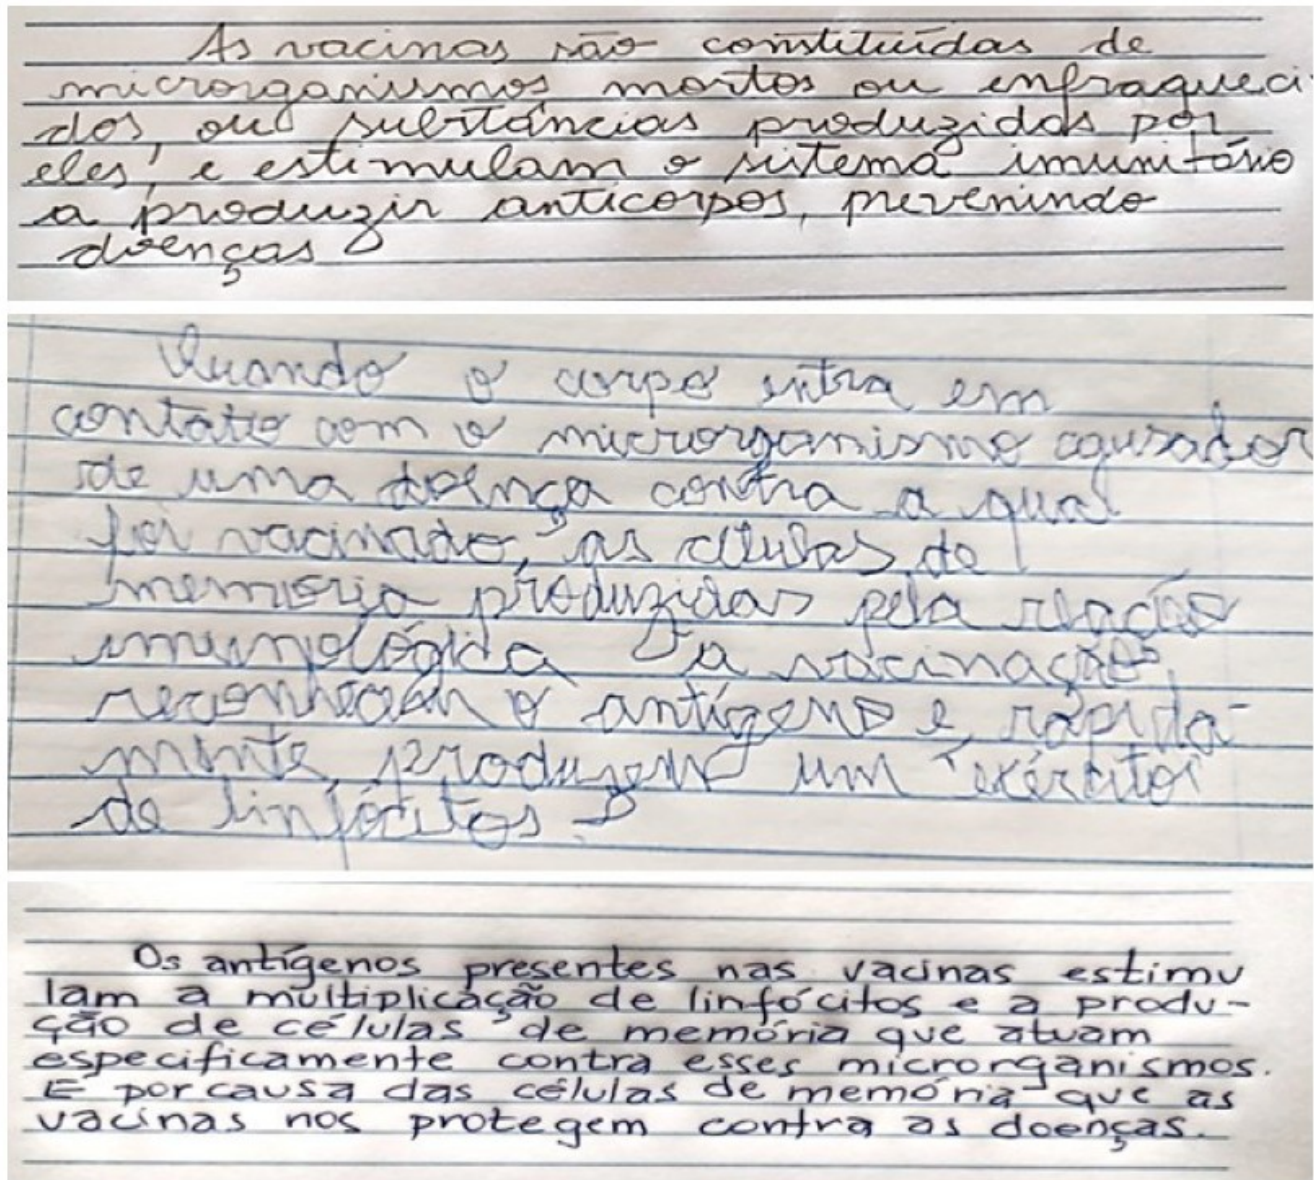 As vacinas são constituídas de
microrganismos mortos ou enfraqueci
dos, ou substâncias produzidas por
eles, e estimulam o sistema imunitário
a produzir anticorpos, prevenindo
doenças
Quando o corpo entra em
contato com o microrganismo causador
de uma doença contra a qual
foi vacinado, as células de
memória produzidas pela
imunológica a vacinação,
reconhecem o antígeno e, rapida-
mente, produzem um "exército"
de linfócitos.
Os antígenos presentes nas vacinas estimu
lam a multiplicação de linfócitos e a produ-
ção de células de memória que atuam
especificamente contra esses microrganismos.
É por causa das células de memória que as
vacinas nos protegem contra as doenças.